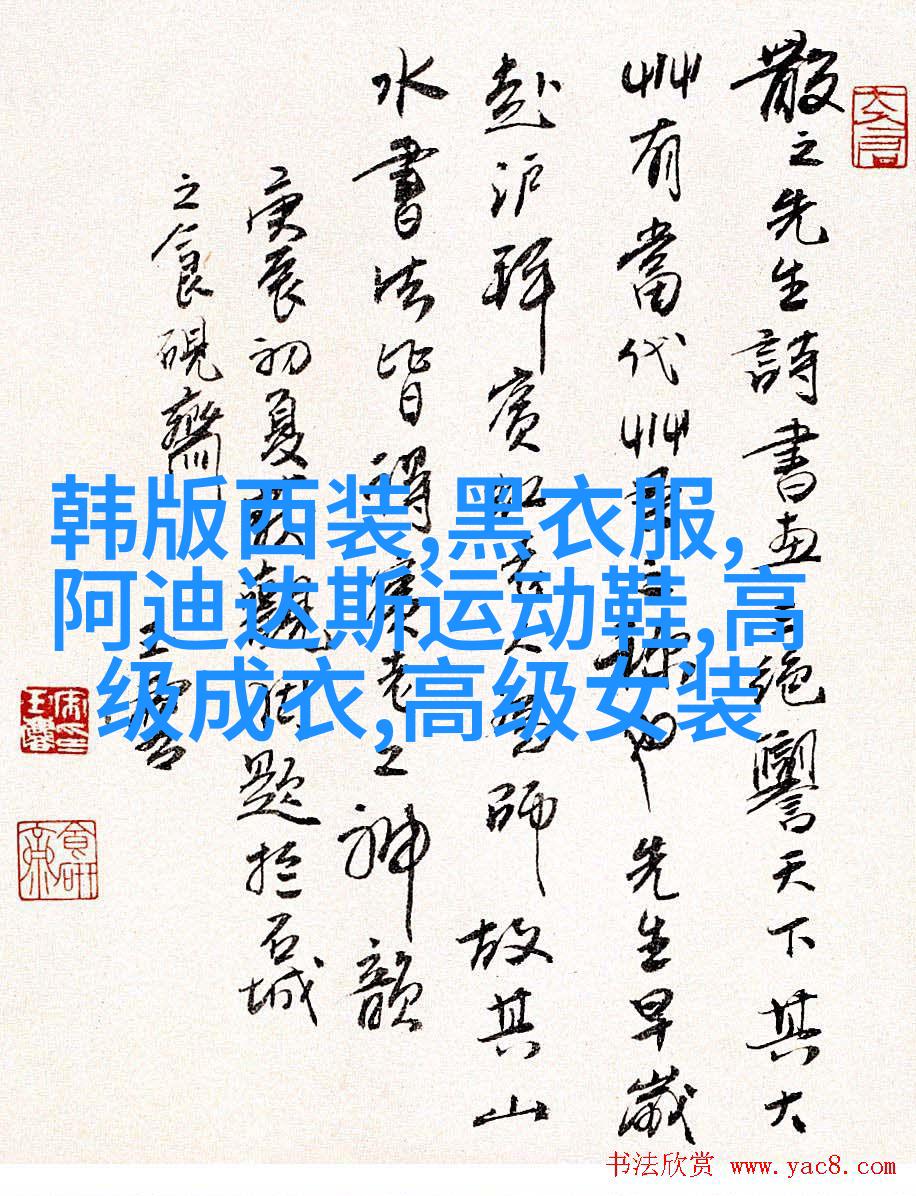 散之先生詩書畫三絕譽天下其大
艸有當代艸聖之 也先生早歲
赴沪拜賓虹老人為師故其山
水書法皆得賓老之神韻
庚辰初夏 觀 題於石城
之食硯齋
韩版西装,黑衣服,
阿迪达斯运动鞋,高
级成衣,高级女装
书法欣赏 www.yac8.com